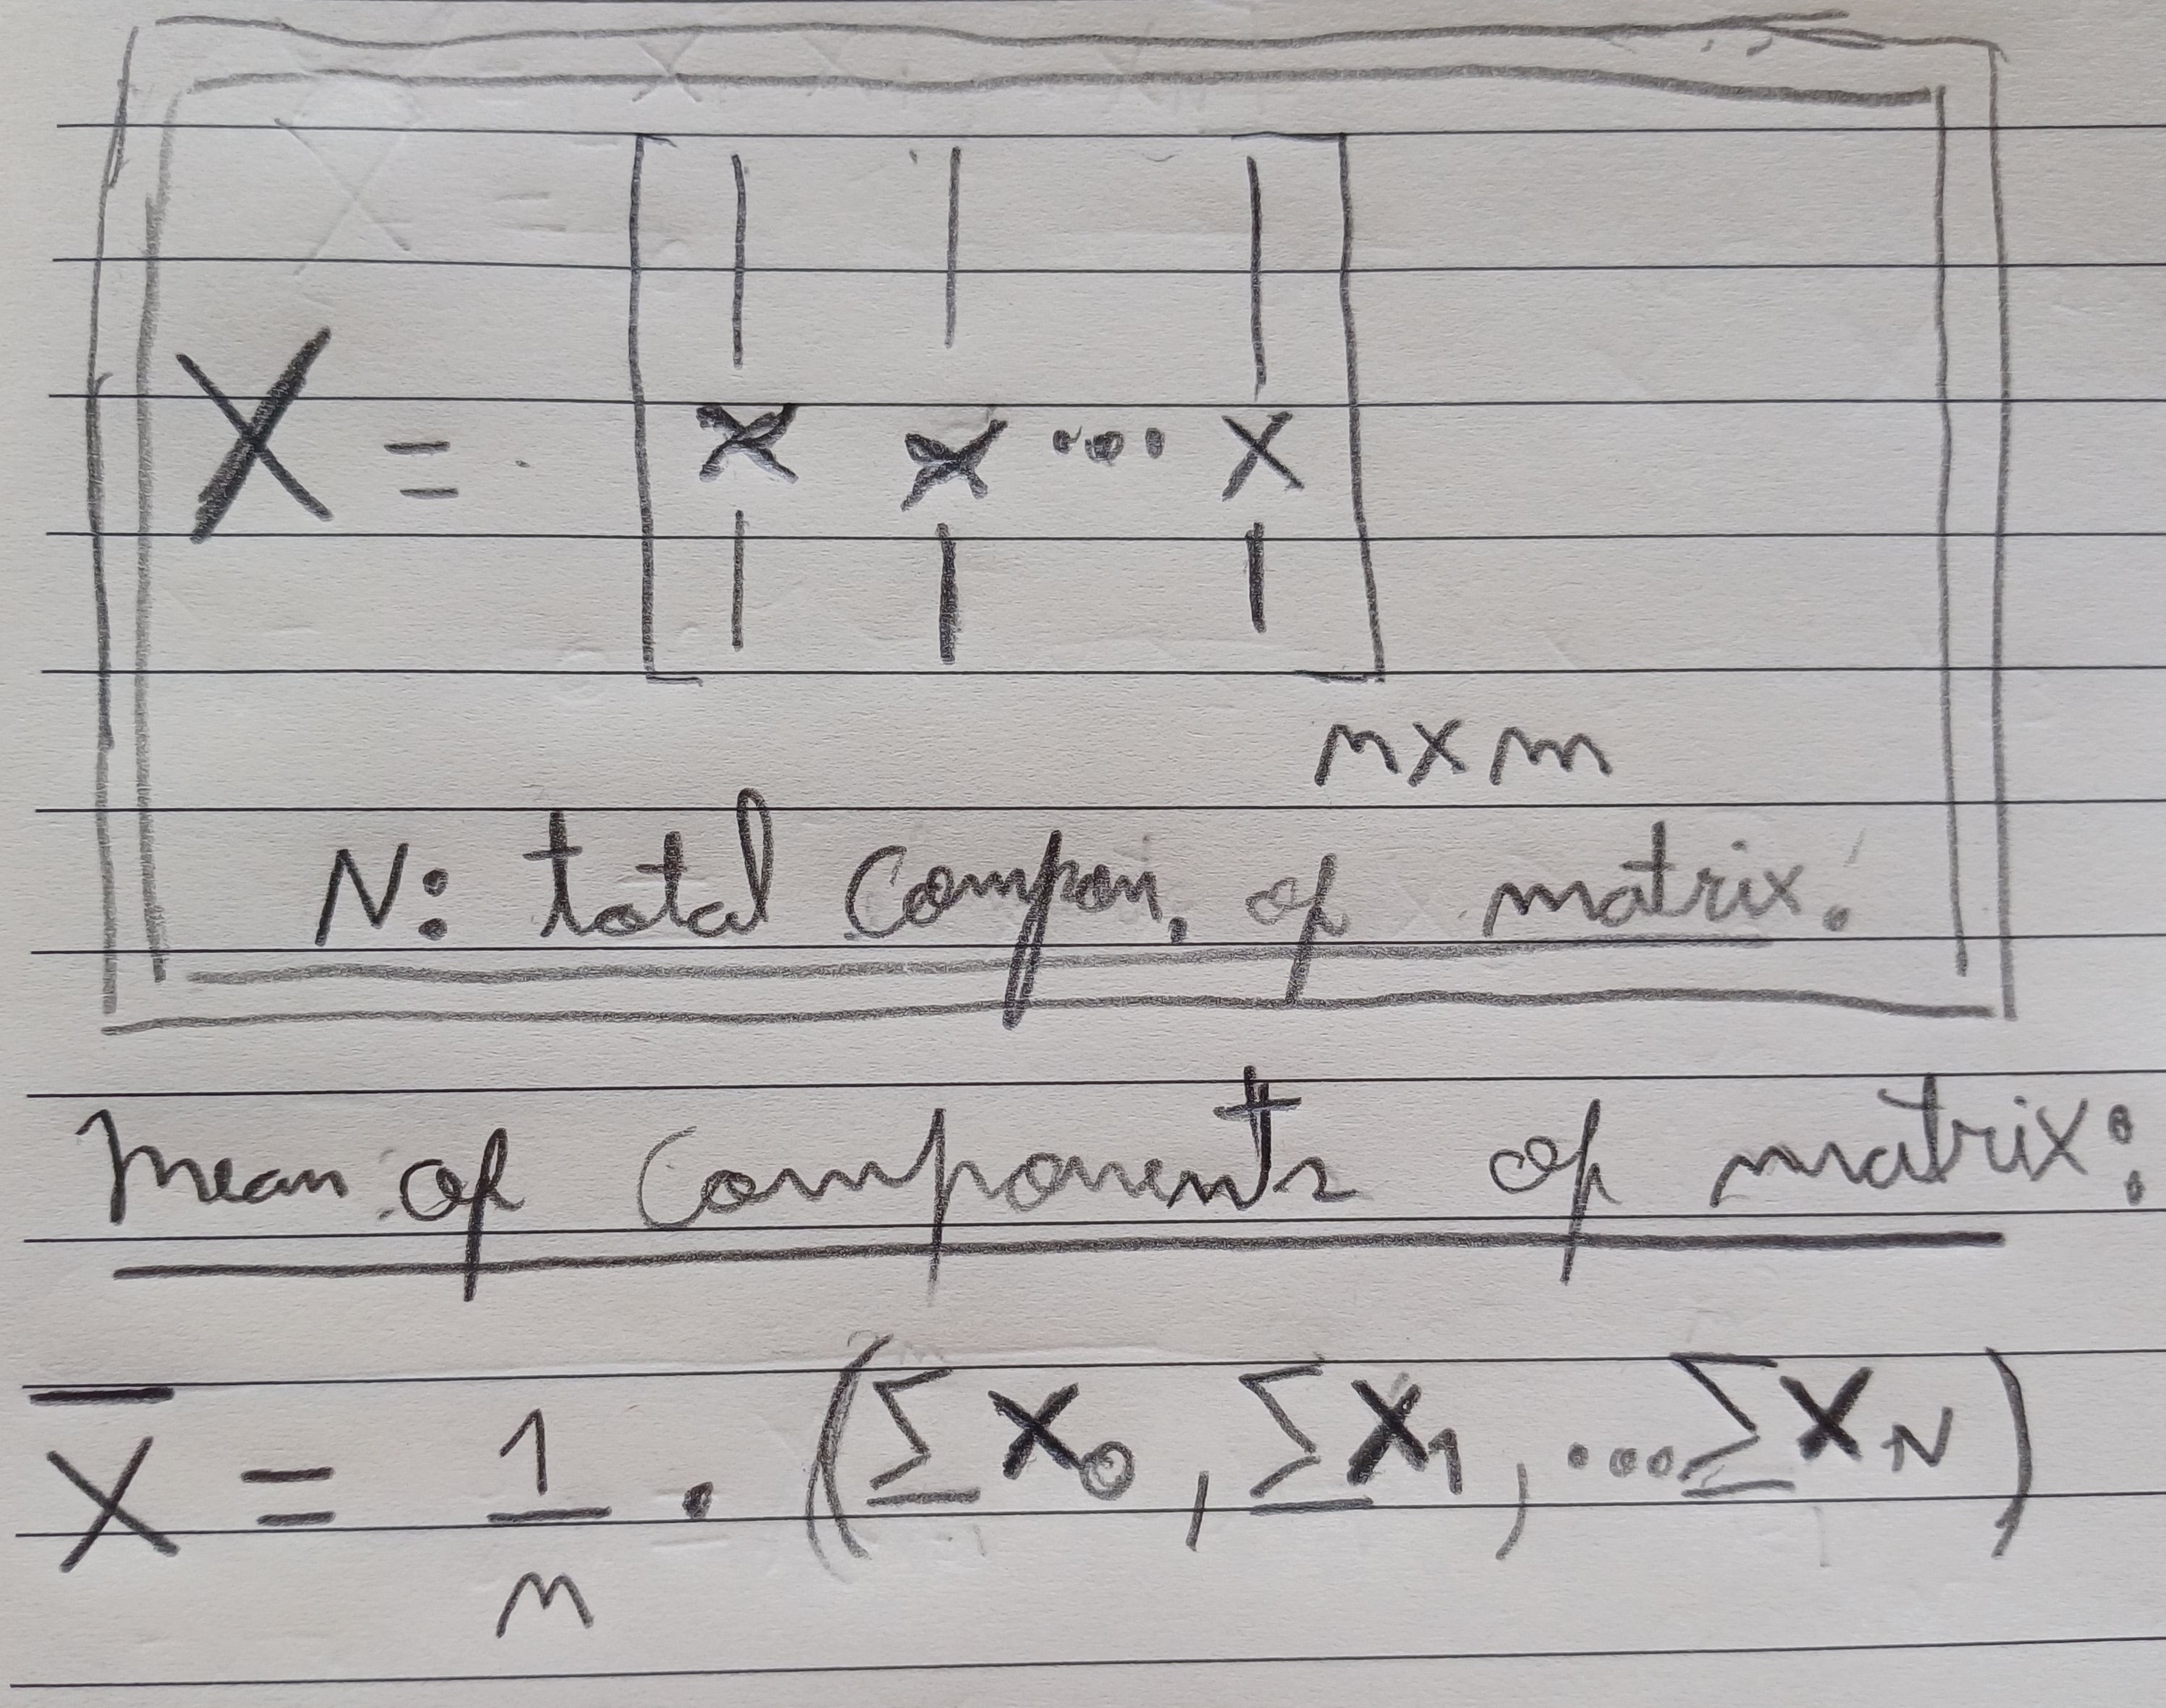 X = [ x x ... x ]
n x m
N: total Compon. of matrix:
Mean of Components of matrix:
X̄ = 1/n . (∑x₀, ∑x₁, ...∑x_N)